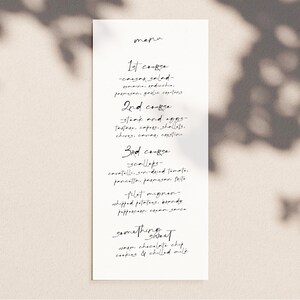 menu
1st course
-caesar salad-
romaine, radicchio,
parmesan, garlic croutons
2nd course
-steak and eggs-
tartare, capers, shallots,
chives, caviar, crostini
3rd course
-scallops-
cavatelli, sun-dried tomato,
pancetta, parmesan
-filet mignon-
whipped potatoes, brandy
peppercorn cream sauce
something
sweet
warm chocolate chip
cookies & chilled milk